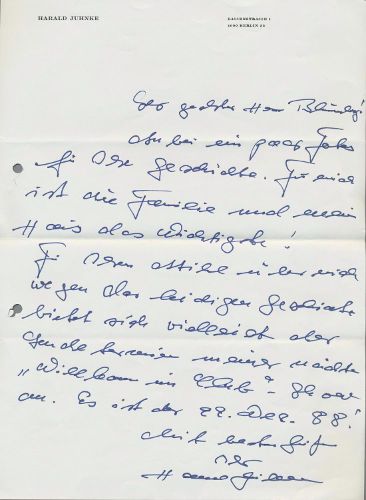 HARALD JUHNKE
1000 BERLIN 33
Sehr geehrter Herr
Anbei ein paar Fotos
für Ihre Geschichte. Für mich
ist die Familie und mein
Haus das Wichtigste!
Für Ihren Artikel über mich
wegen der leidigen Geschichte
bietet sich vielleicht der
Sendetermin meiner nächsten
„Willkommen im Club"- Show
an. Es ist der 22. Dez. 88!
Mit besten Grüßen
Ihr